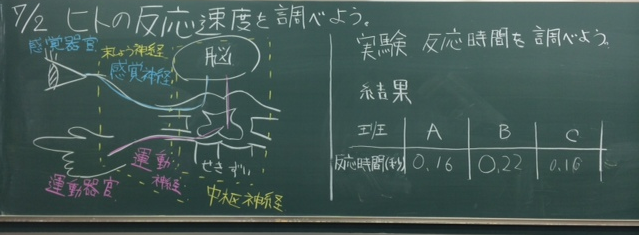 7/2 ヒトの反応速度を調べよう。
感覚器官
末しょう神経
感覚神経
脳
運動
神経
せきずい
運動器官
中枢神経
実験 反応時間を調べよう。
結果
班 A B C
反応時間(秒) 0.16 0.22